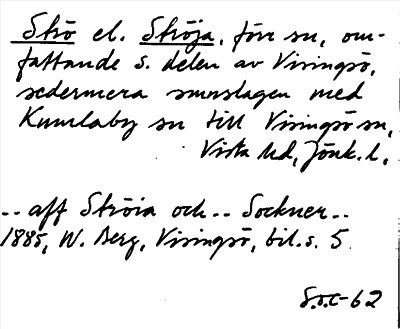 Strö el. Ströja, förr sn, om-
fattande s. delen av Visingsö,
sedermera smnslagen med
Kumlaby sn till Visingsö sn,
Vista hd, Jönk. l.
-- aff Ströia och -- Sockner --
1885, W. Berg, Visingsö, bil. s. 5
S.O.C-62